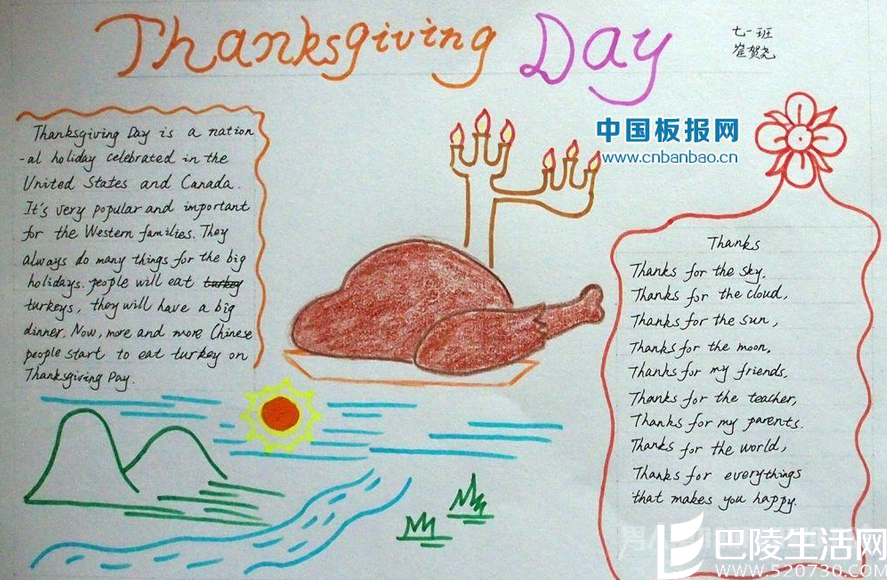 Thanksgiving Day
七一班
崔贺尧
中国板报网
www.cnbanbao.cn
Thanksgiving Day is a nation
-al holiday celebrated in the
United States and Canada.
It's very popular and important
for the Western families. They
always do many things for the big
holidays. people will eat turkey
turkeys, they will have a big
dinner. Now, more and more Chinese
people start to eat turkey on
Thanksgiving Day.
Thanks
Thanks for the sky,
Thanks for the cloud,
Thanks for the sun,
Thanks for the moon,
Thanks for my friends,
Thanks for the teacher,
Thanks for my parents.
Thanks for the world,
Thanks for everythings
that makes you happy.
巴陵生活网
www.520730.com